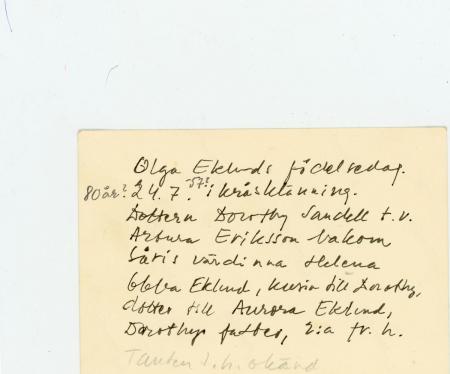 Olga Eklunds födelsedag.
80 år? 24.7.57? i kråsklänning.
Dottern Dorothy Sandell t.v.
Artura Eriksson bakom
värdinna Helena
Ebba Eklund, kusin till Dorothy,
dotter till Aurora Eklund,
Dorothys faster, 2:a fr. h.
Tanten t.h. okänd